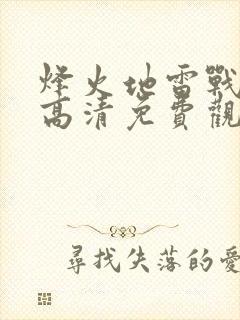 烽火地雷戰
高清免費觀
尋找失落的愛